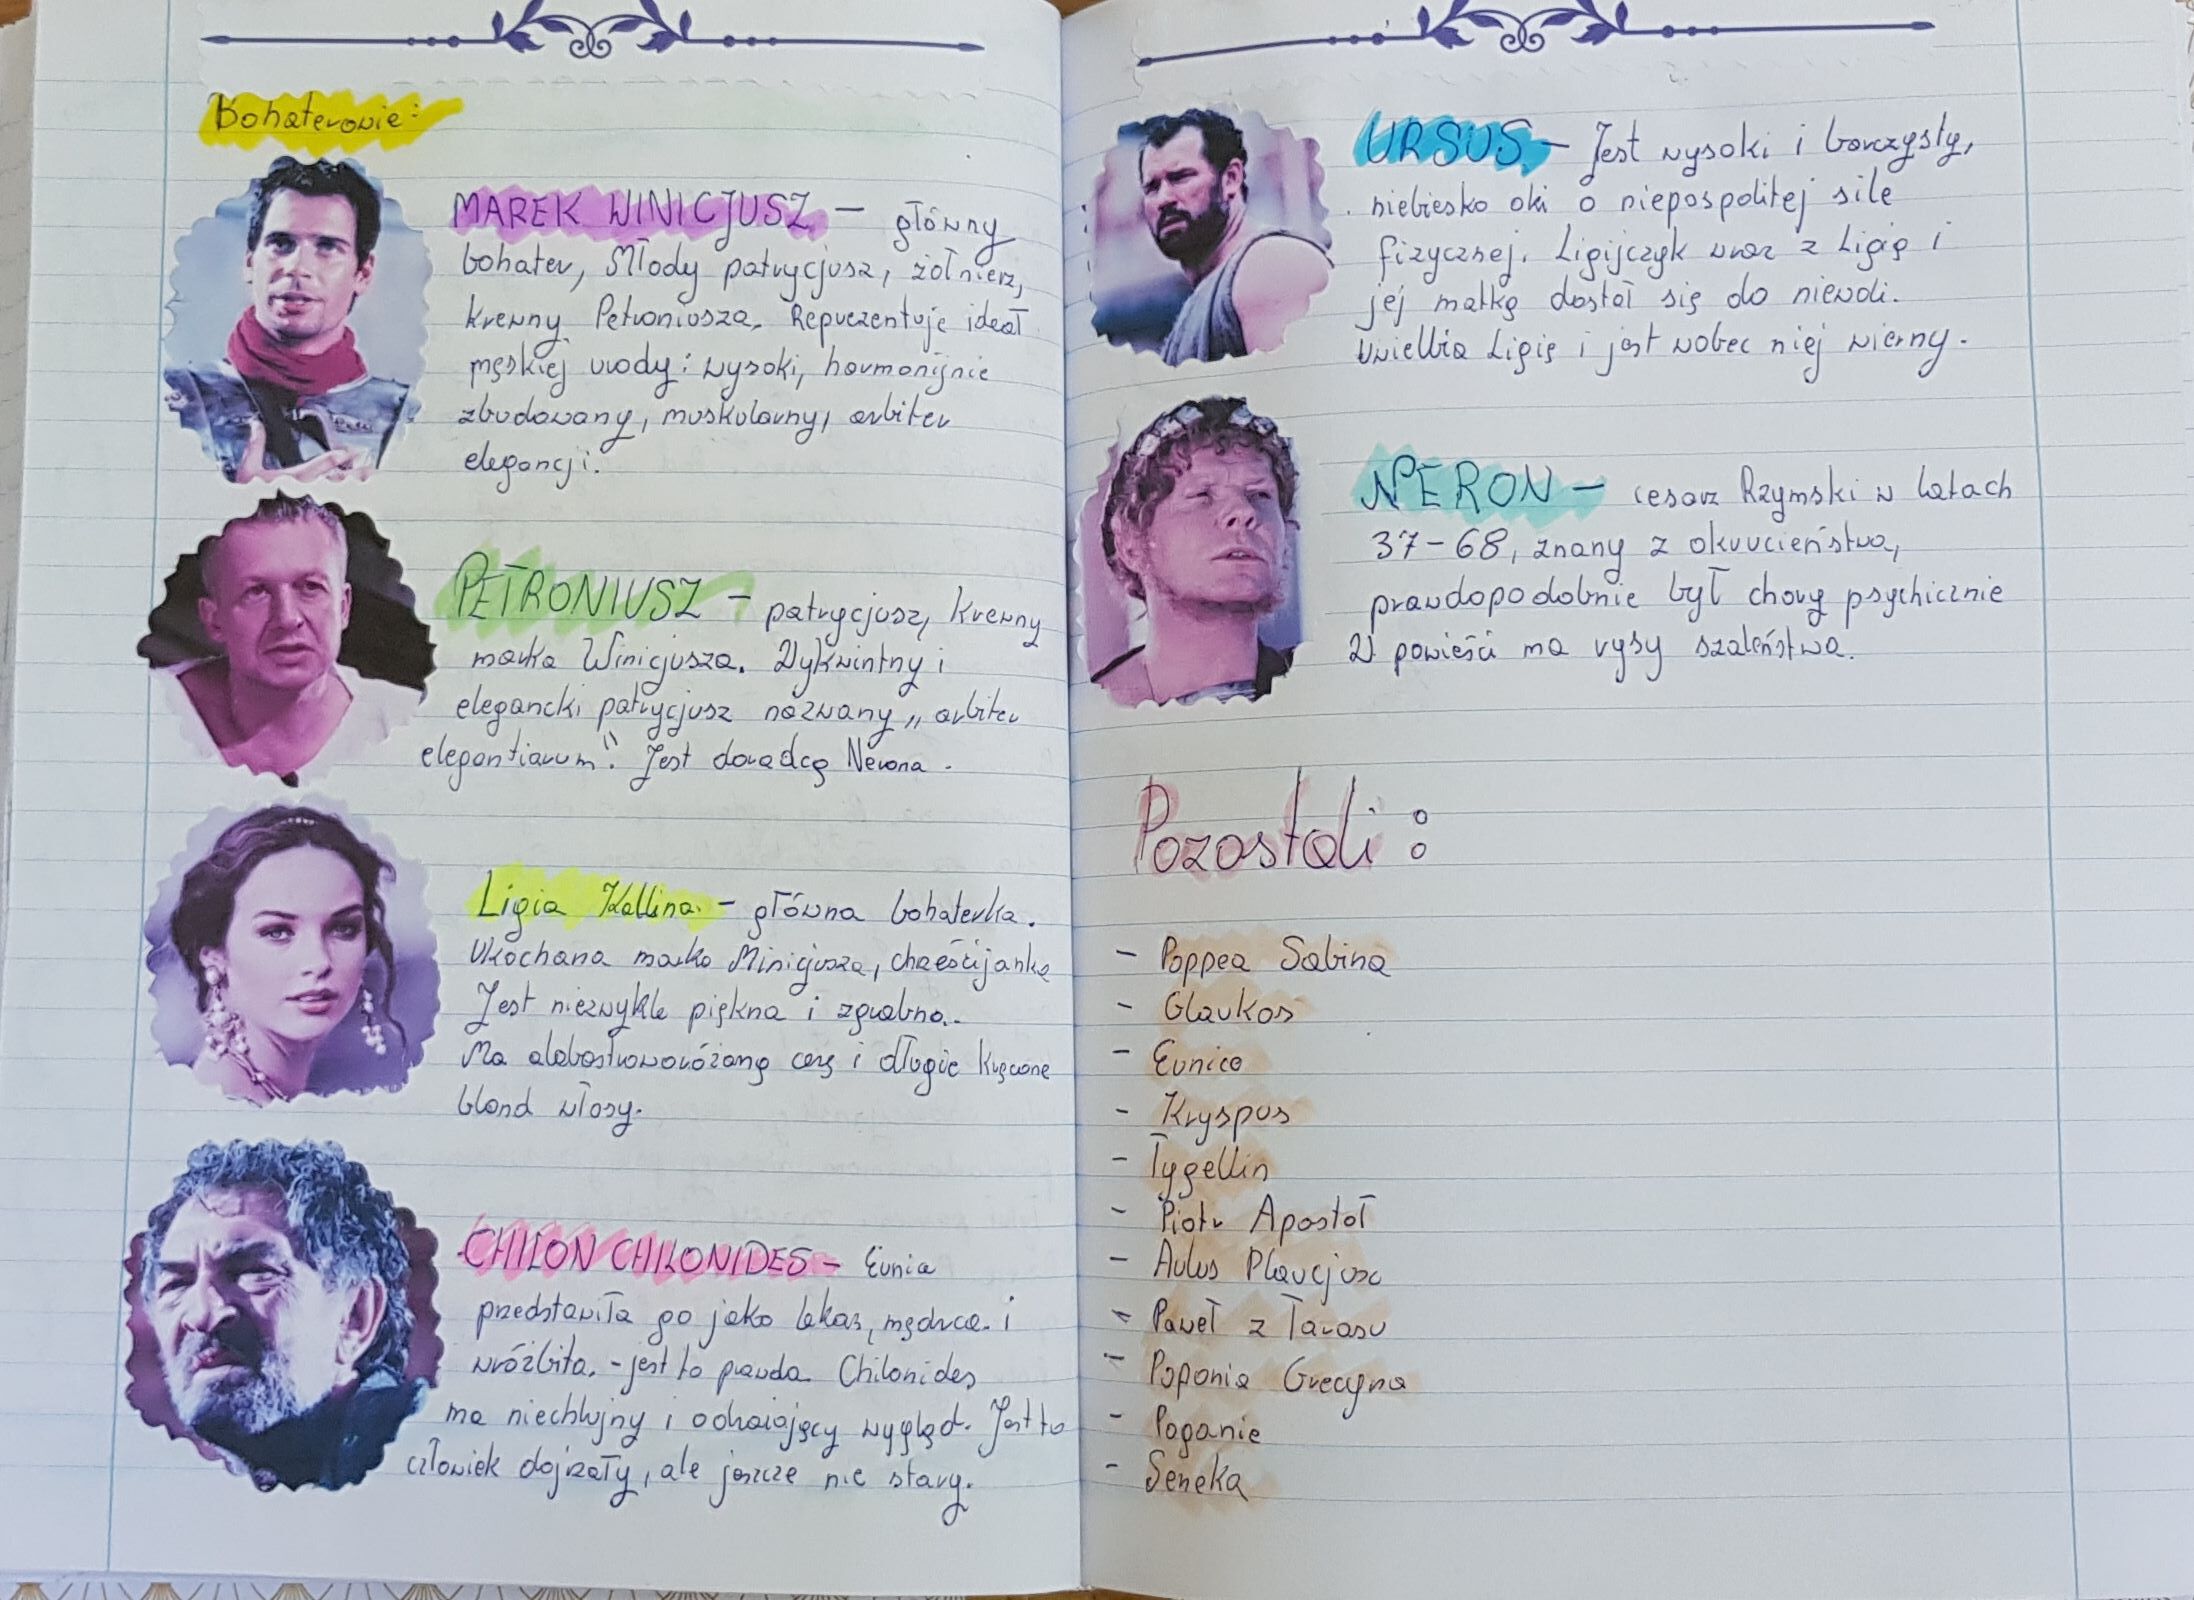 Bohaterowie:
MAREK WINICJUSZ – główny
bohater, Młody patrycjusz, żołnierz,
krewny Petroniusza. Reprezentuje ideał
męskiej urody: wysoki, harmonijnie
zbudowany, muskularny, arbiter
elegancji.
PETRONIUSZ – patrycjusz, krewny
marka Winicjusza. Wykwintny i
elegancki patrycjusz nazwany „arbiter
elegantiarum". Jest doradcą Nerona.
Ligia Kallina. – główna bohaterka.
Ukochana marka Winicjusza, chześcijanka
Jest niezwykle piękna i zgrabna..
Ma alabastrowo różaną cerę i długie kręcone
blond włosy.
CHILON CHILONIDES – Eunia
przedstawiła go jako lekarz, mędrca i
wróżbita. – jest to prawda Chilonides
ma niechlujny i odrażający wygląd. Jest to
człowiek dojrzały, ale jeszcze nie stary.
URSUS – Jest wysoki i barczysty,
niebiesko oki o niepospolitej sile
fizycznej. Ligijczyk wraz z Ligią i
jej matką dostał się do niewoli.
Uwielbia Ligię i jest wobec niej wierny.
NERON – cesarz Rzymski w latach
37–68, znany z okrucieństwa,
prawdopodobnie był chory psychicznie
W powieści ma rysy szaleństwa.
Pozostali:
– Poppea Sabina
– Glaukos
– Eunice
– Kryspus
– Tygellin
– Piotr Apostoł
– Aulus Plaucjusz
– Paweł z Tarasu
– Poponia Grecyna
– Poganie
– Seneka